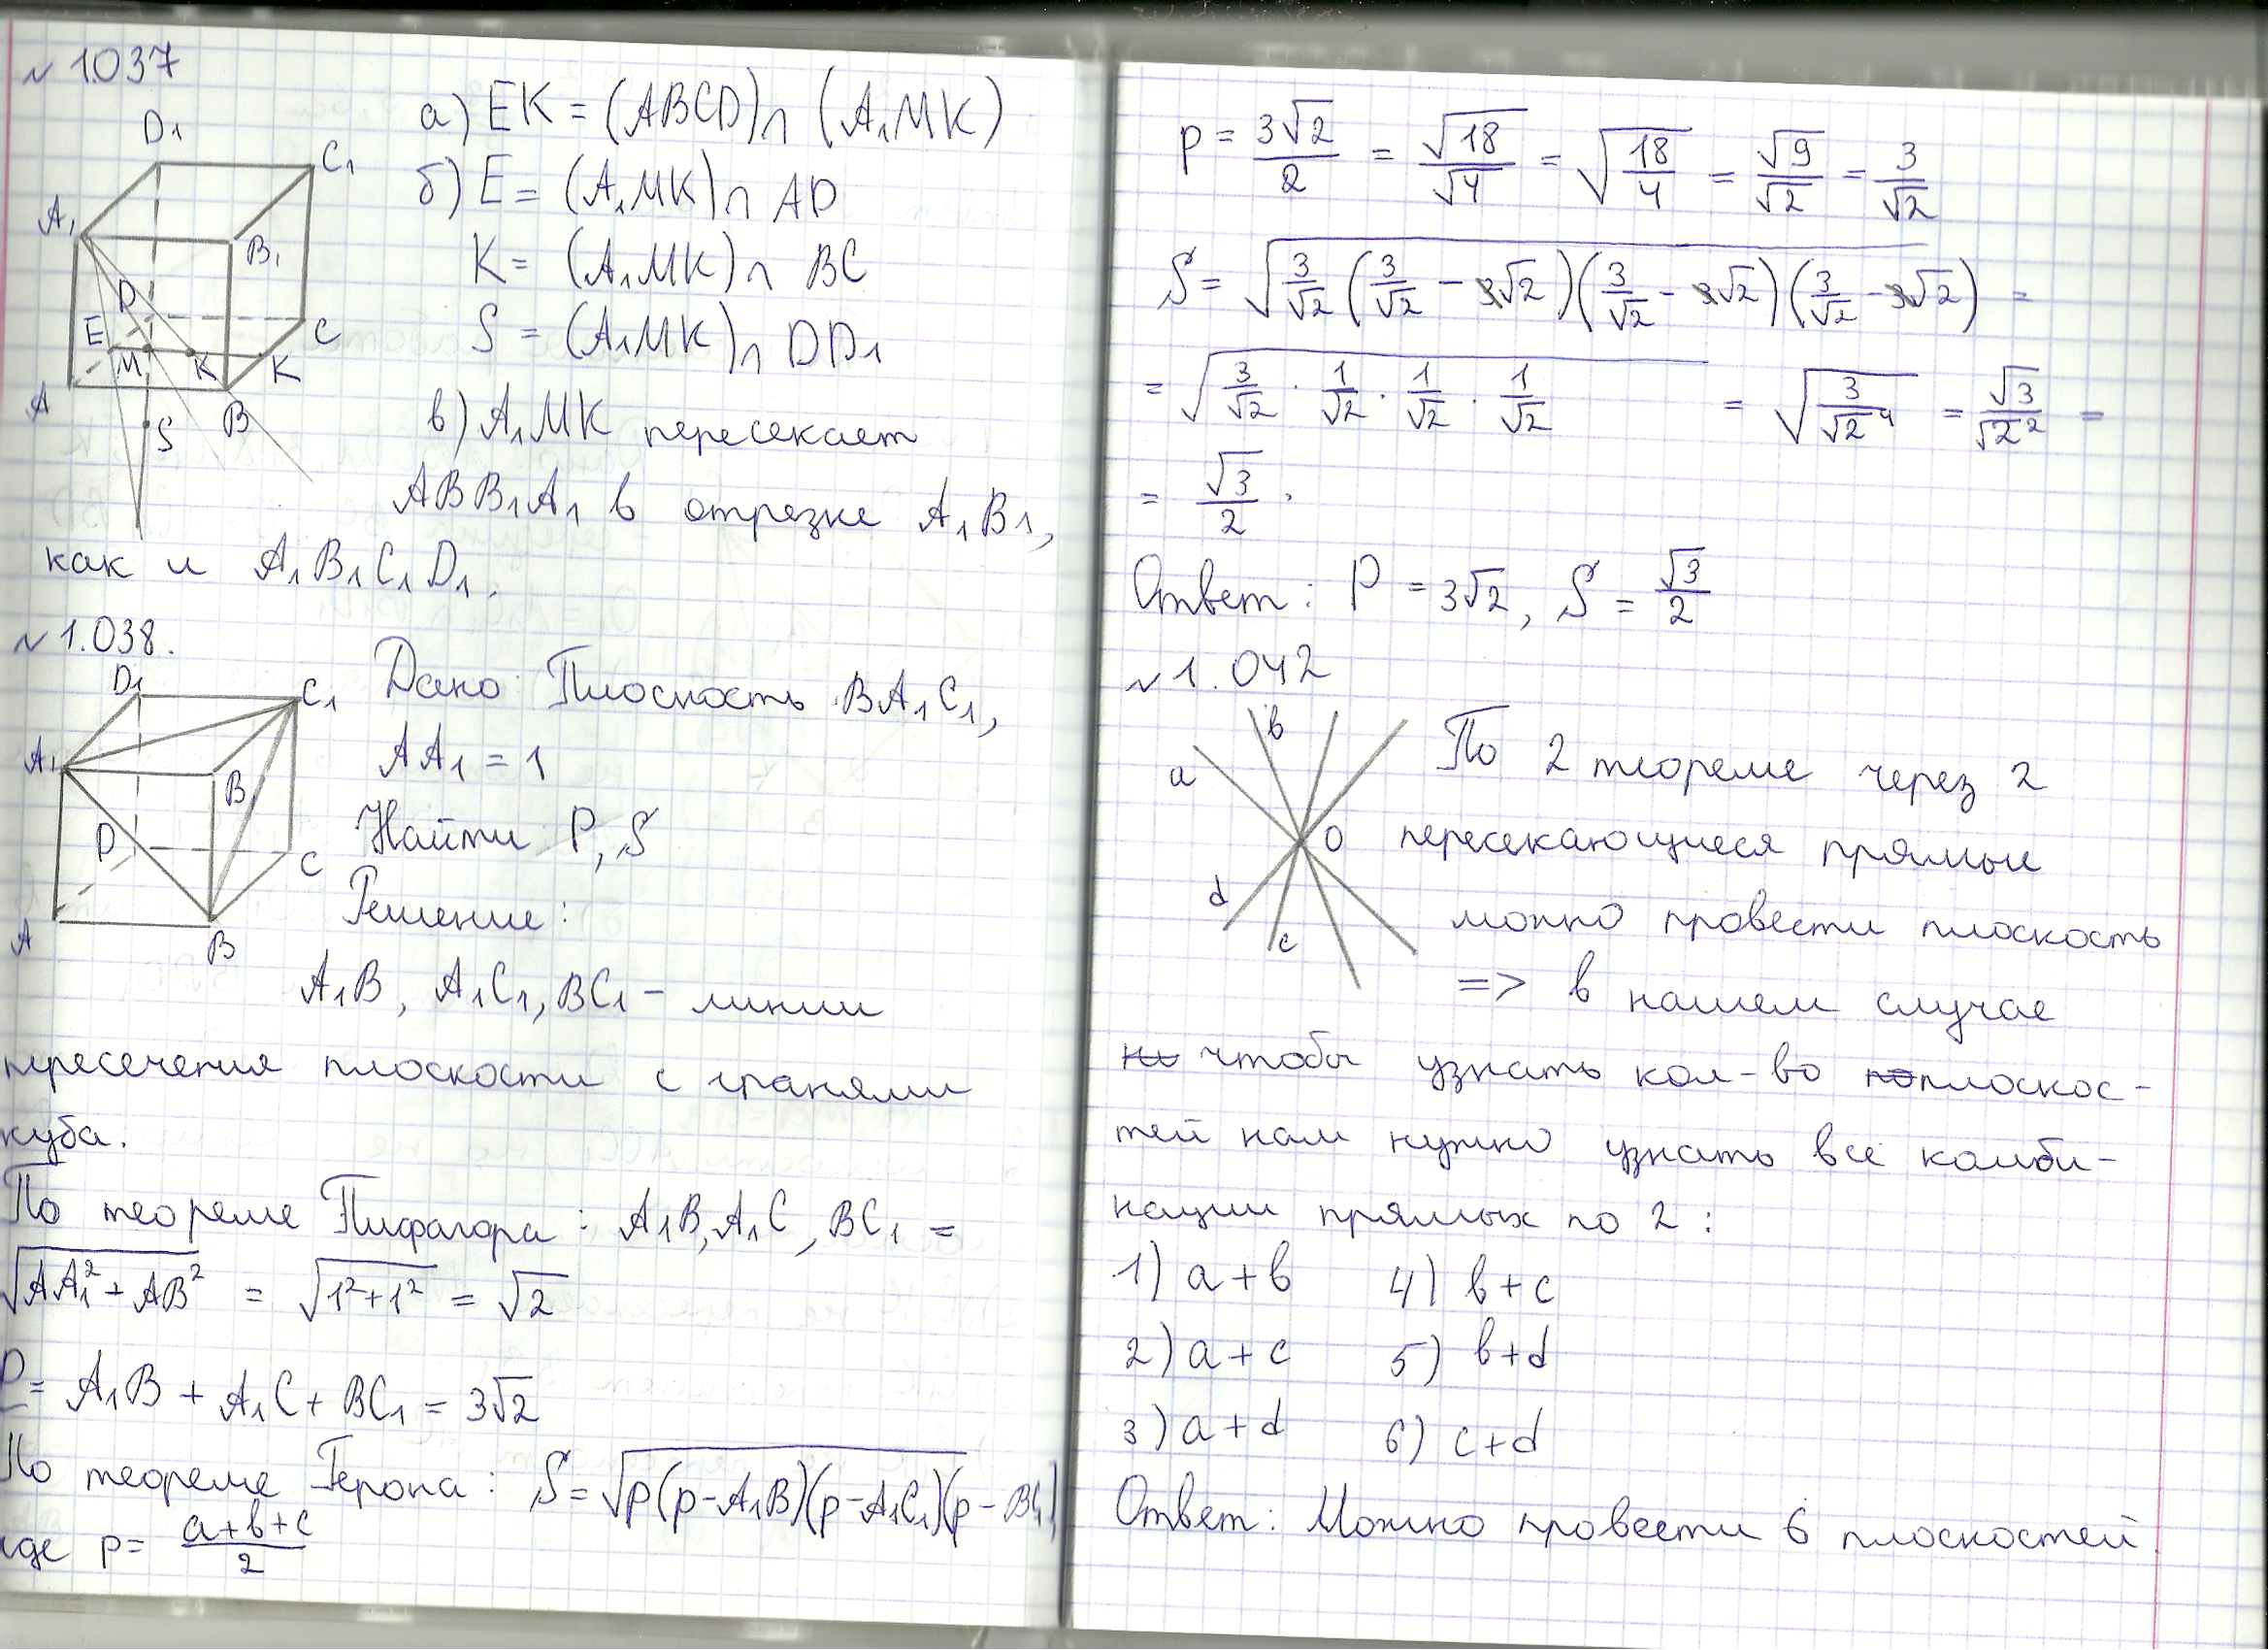 № 1.037
D₁
C₁
A₁
B₁
D
E
C
M
K
K
A
B
S
а) EK = (ABCD)∩ (A₁MK)
б) E = (A₁MK)∩ AD
K = (A₁MK)∩ BC
S = (A₁MK)∩ DD₁
в) A₁MK пересекает
ABB₁A₁ в отрезке A₁B₁,
как и A₁B₁C₁D₁.
№ 1.038.
D₁
C₁
A₁
B₁
D
C
A
B
Дано: Плоскость BA₁C₁,
AA₁ = 1
Найти P, S
Решение:
A₁B, A₁C₁, BC₁ – линии
пересечения плоскости с гранями
куба.
По теореме Пифагора: A₁B, A₁C, BC₁ =
√(AA₁² + AB²) = √(1²+1²) = √2
P = A₁B + A₁C + BC₁ = 3√2
По теореме Герона: S = √(p(p-A₁B)(p-A₁C₁)(p-BC₁)
где p = (a+b+c)/2
p = 3√2/2 = √18/√4 = √(18/4) = √9/√2 = 3/√2
S = √(3/√2 (3/√2 - √2)(3/√2 - √2)(3/√2 - √2)) =
= √(3/√2 · 1/√2 · 1/√2 · 1/√2) = √(3/√2⁴) = √3/√2² =
= √3/2.
Ответ: P = 3√2, S = √3/2
№ 1.042
a
b
O
d
c
По 2 теореме через 2
пересекающиеся прямые
можно провести плоскость
=> в нашем случае
чтобы узнать кол-во плоскос-
тей нам нужно узнать все комби-
нации прямых по 2:
1) a+b 4) b+c
2) a+c 5) b+d
3) a+d 6) c+d
Ответ: Можно провести 6 плоскостей.